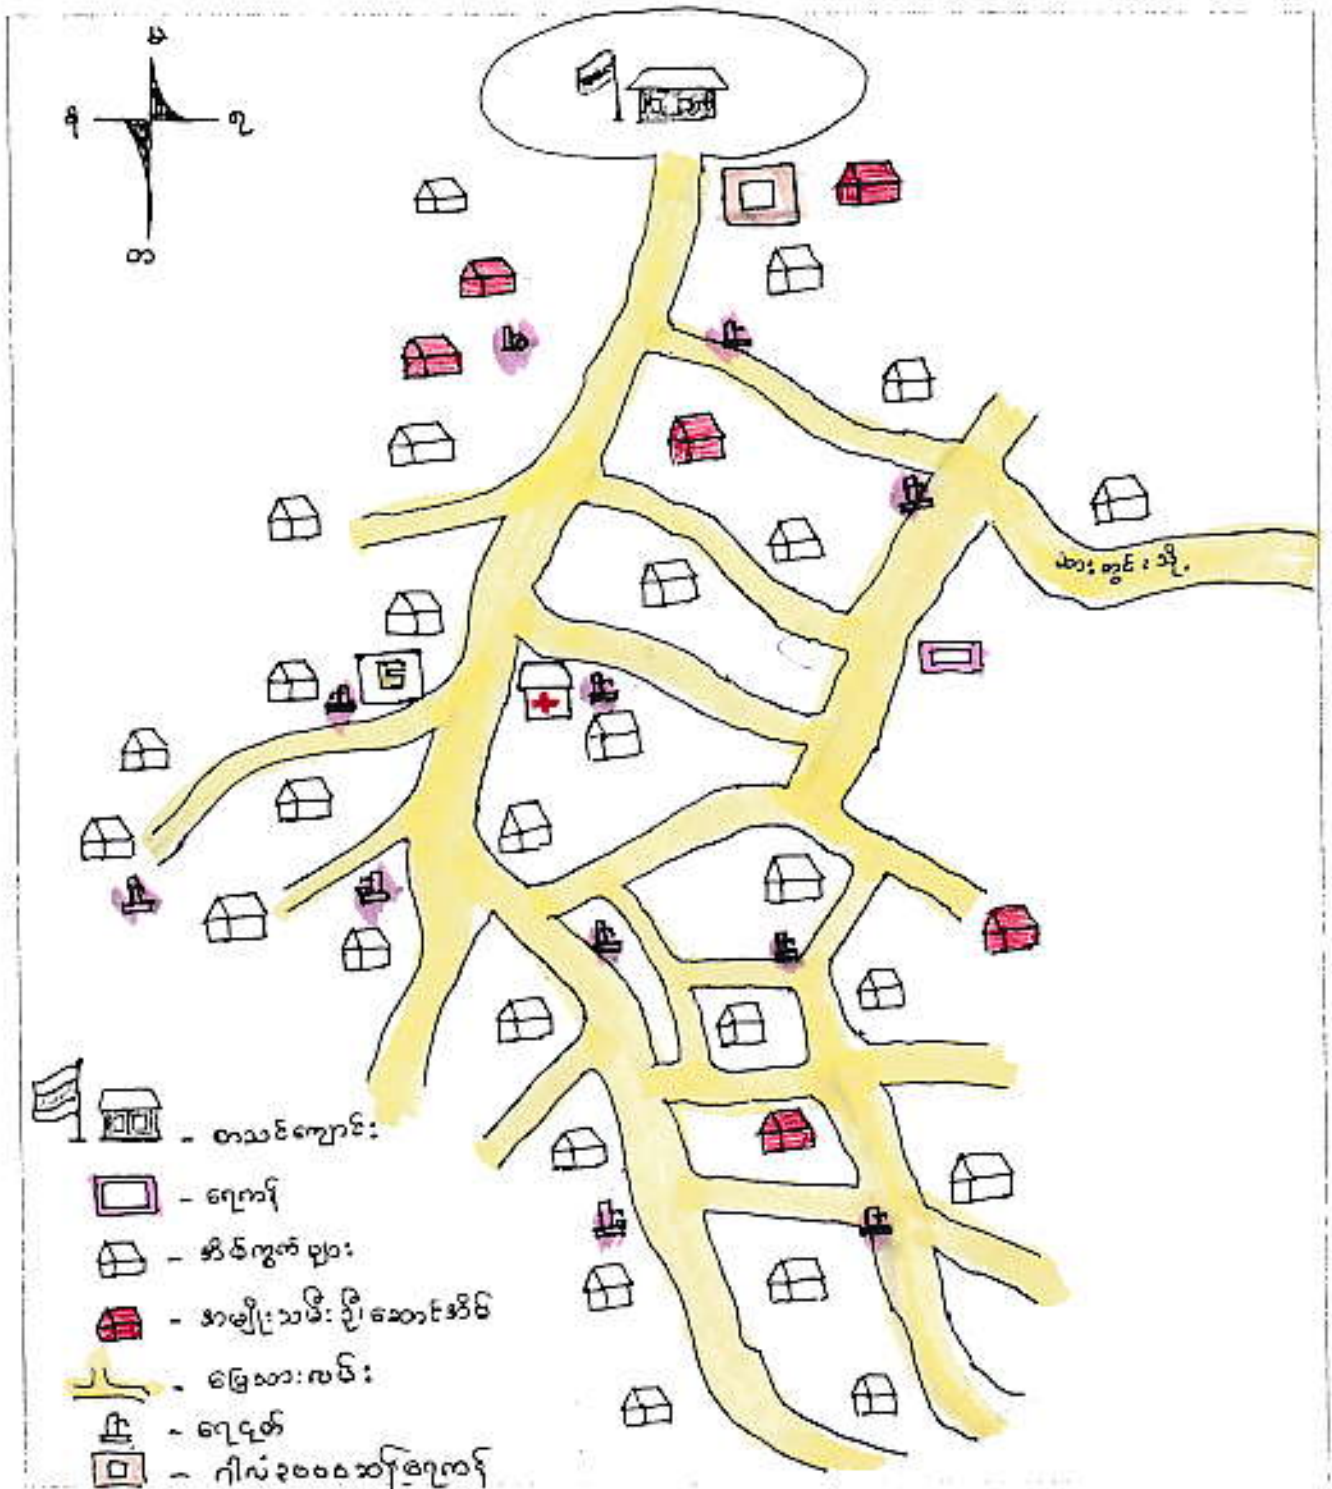 မ
န
ရ
တ
ဆားတွင်းသို့
- စာသင်ကျောင်း
- ရေကန်
- အိမ်ကွက်များ
- အမျိုးသမီးဦးဆောင်အိမ်
- မြေသားလမ်း
- ရေငုတ်
- ဂါလံ ၃၀၀၀ ဆန့်ရေကန်